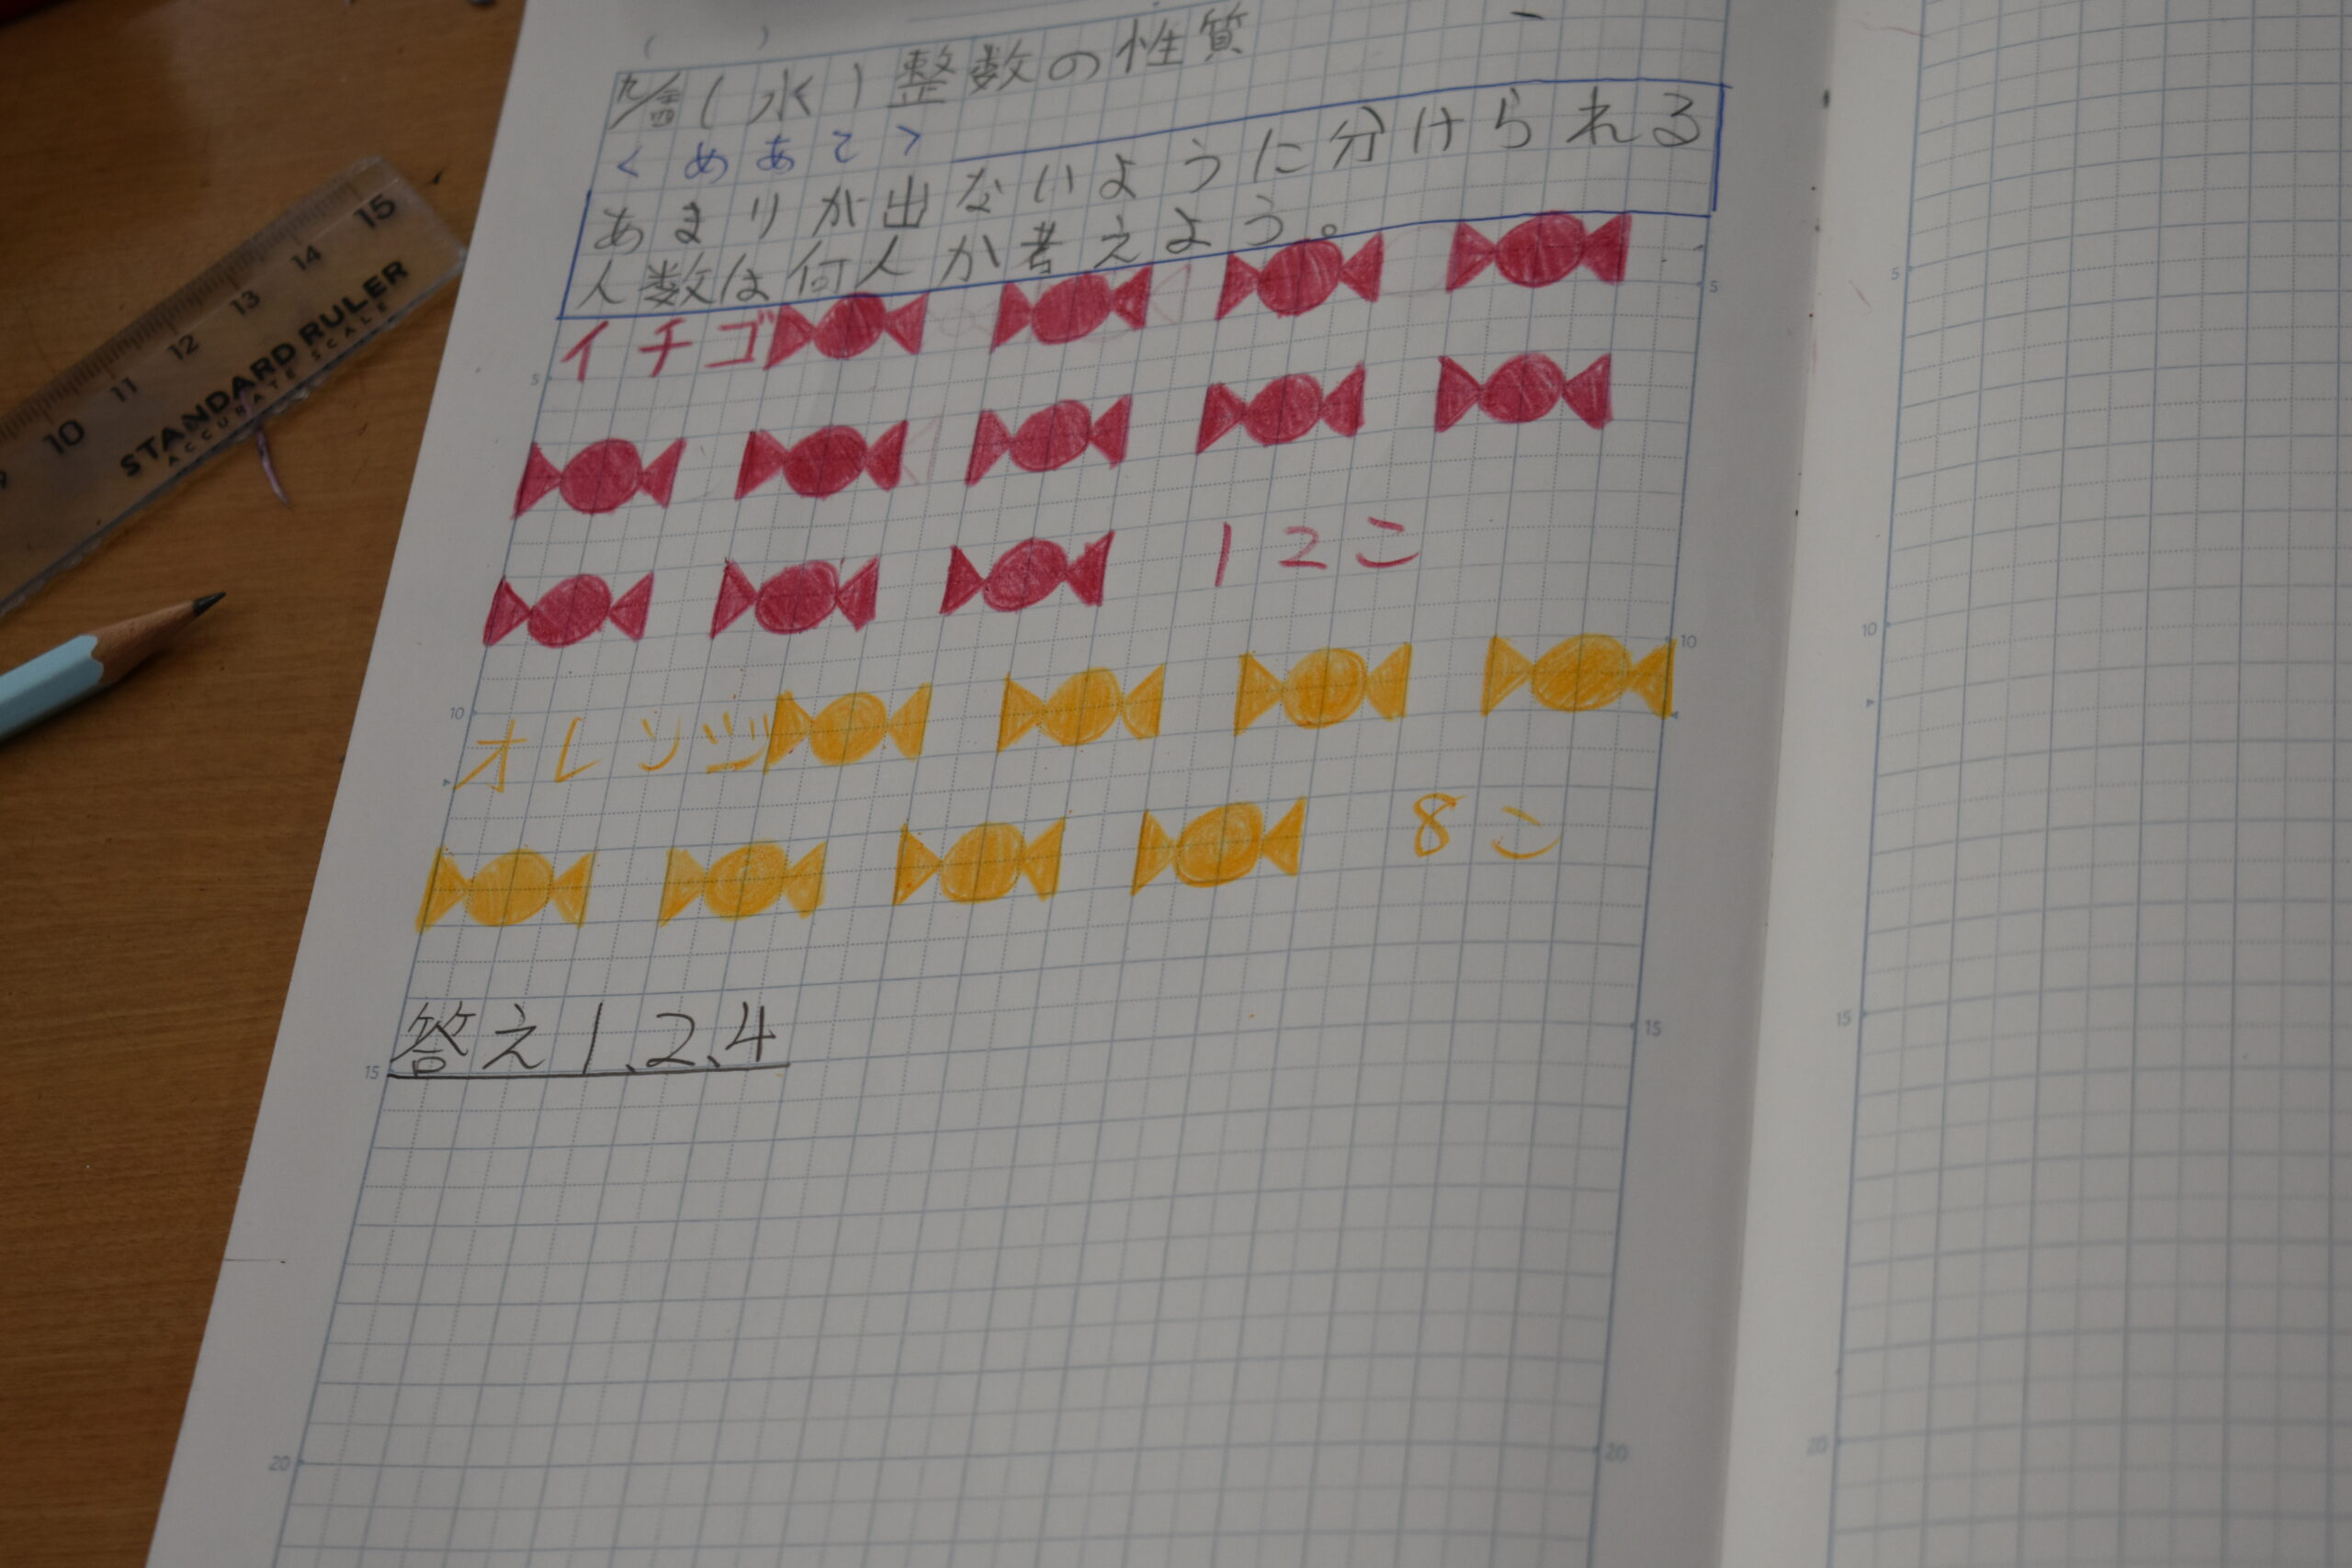 (水) 整数の性質
<めあて>
あまりが出ないように分けられる
人数は何人か考えよう。
イチゴ
12こ
オレンジ
8こ
答え1、2、4
5
10
15
20
5
10
15
20
5
10
15
20
10 11 12 13 14 15
STANDARD RULER
ACCURATE SCALE